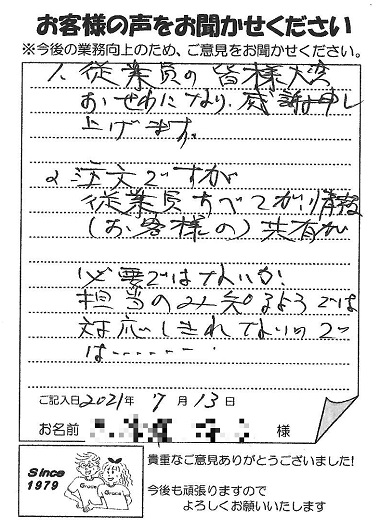 お客様の声をお聞かせください
※今後の業務向上のため、ご意見をお聞かせください。
1、従業員の皆様大変
おせわになり、感謝申し
上げます。
2 注文ですが
従業員すべてが情報
(お客様の)共有が
必要ではないか!
担当のみ知るようでは
対応しきれてないので
は‥‥‥‥
ご記入日 2021年 7月 13日
お名前 様
Since
1979
Grace
Grace
貴重なご意見ありがとうございました!
今後も頑張りますので
よろしくお願いいたします